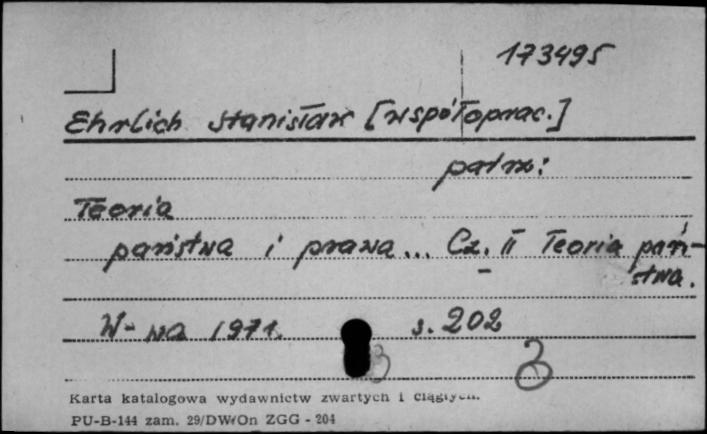 173495
Ehrlich Stanisław [współoprac.]
patrz:
Teoria
państwa i prawa... Cz. II Teoria pań-
stwa.
W-wa 1971. s. 202
3 3
Karta katalogowa wydawnictw zwartych i ciągłych.
PU-B-144 zam. 29/DW/On ZGG - 204